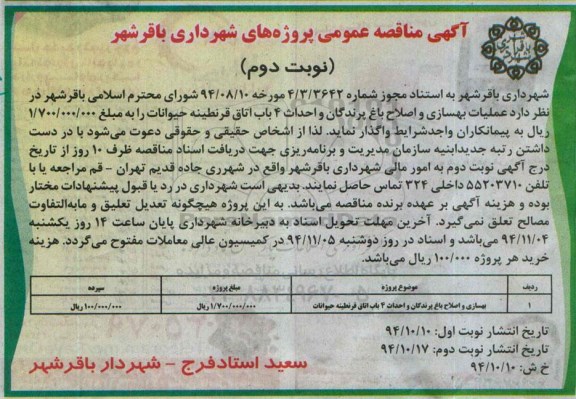 آگهی مناقصه عمومی پروژه‌های شهرداری باقرشهر
(نوبت دوم)
شهرداری باقرشهر به استناد مجوز شماره ۴/۳/۳۶۴۲ مورخه ۹۴/۰۸/۱۰ شورای محترم اسلامی باقرشهر در
نظر دارد عملیات بهسازی و اصلاح باغ پرندگان و احداث ۴ باب اتاق قرنطینه حیوانات را به مبلغ ۱/۷۰۰/۰۰۰/۰۰۰
ریال به پیمانکاران واجدشرایط واگذار نماید. لذا از اشخاص حقیقی و حقوقی دعوت می‌شود با در دست
داشتن رتبه جدیدابنیه سازمان مدیریت و برنامه‌ریزی جهت دریافت اسناد مناقصه ظرف ۱۰ روز از تاریخ
درج آگهی نوبت دوم به امور مالی شهرداری باقرشهر واقع در شهرری جاده قدیم تهران - قم مراجعه یا با
تلفن ۵۵۲۰۳۷۱۰ داخلی ۳۲۴ تماس حاصل نمایند. بدیهی است شهرداری در رد یا قبول پیشنهادات مختار
بوده و هزینه آگهی بر عهده برنده مناقصه می‌باشد. به این پروژه هیچگونه تعدیل تعلیق و مابه‌التفاوت
مصالح تعلق نمی‌گیرد. آخرین مهلت تحویل اسناد به دبیرخانه شهرداری پایان ساعت ۱۴ روز یکشنبه
۹۴/۱۱/۰۴ می‌باشد و اسناد در روز دوشنبه ۹۴/۱۱/۰۵ در کمیسیون عالی معاملات مفتوح می‌گردد. هزینه
خرید هر پروژه ۱۰۰/۰۰۰ ریال می‌باشد.
ردیف موضوع پروژه مبلغ پروژه سپرده
۱ بهسازی و اصلاح باغ پرندگان و احداث ۴ باب اتاق قرنطینه حیوانات ۱/۷۰۰/۰۰۰/۰۰۰ ریال ۱۰۰/۰۰۰/۰۰۰ ریال
تاریخ انتشار نوبت اول: ۹۴/۱۰/۱۰
تاریخ انتشار نوبت دوم: ۹۴/۱۰/۱۷
خ ش: ۹۴/۱۰/۱۰
سعید استادفرج - شهردار باقرشهر